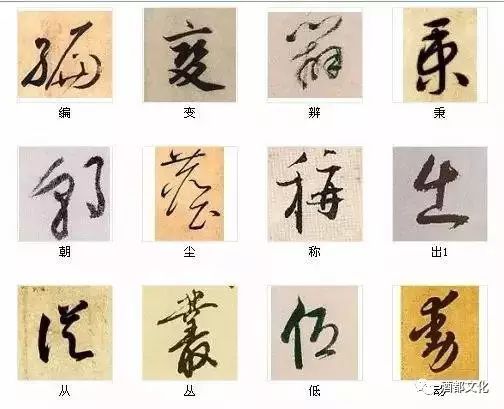 编 变 辨 秉
朝 尘 称 出1
从 丛 低 动
酒都文化